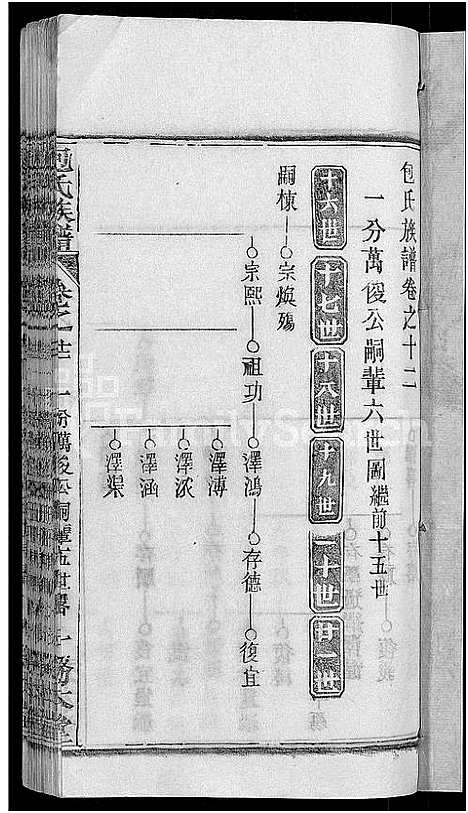 包氏族譜卷之十二
一分萬俊公嗣輩六世圖繼前十五世
十六世 十七世 十八世 十九世 二十世 廿一世
嗣棟 宗煥殤
宗熙 祖功 澤鴻 存德 復宜
澤溥
澤涵
澤渠
包氏族譜 卷之十二 一分萬俊公嗣輩五世
FamilySearch